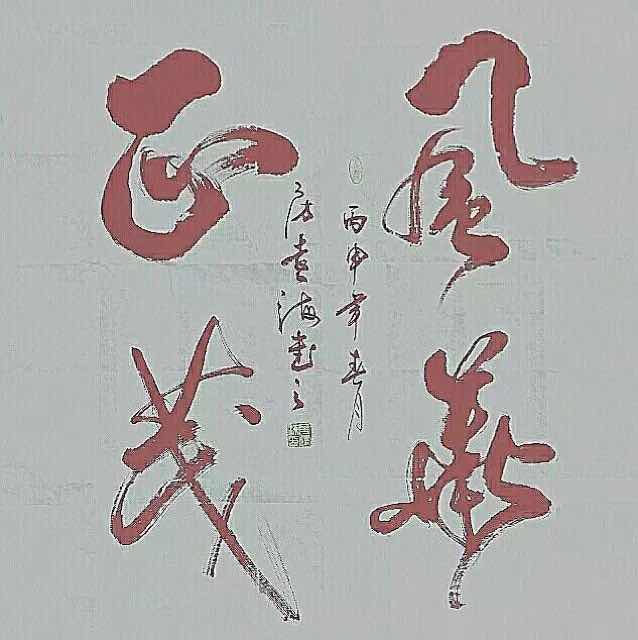 風華
正茂
丙申年春月
海書之